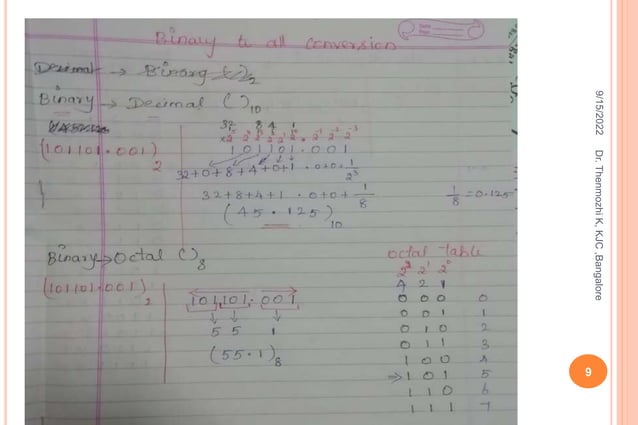 Binary to all conversion
Decimal → Binary ( )2
Binary → Decimal ( )10
32 8 4 1
×2⁵ 2⁴ 2³ 2² 2¹ 2⁰ . 2⁻¹ 2⁻² 2⁻³
(101101.001)2
1 0 1 1 0 1 . 0 0 1
32+0+8+4+0+1 . 0+0+ 1/2³
32+8+4+1 . 0+0+ 1/8
1/8 = 0.125
(45.125)10
Binary → Octal ( )8
(101101.001)2
101 101 . 001
↓ ↓ ↓
5 5 1
(55.1)8
Octal Table
2² 2¹ 2⁰
4 2 1
0 0 0 0
0 0 1 1
0 1 0 2
0 1 1 3
1 0 0 4
⇒ 1 0 1 5
1 1 0 6
1 1 1 7
9/15/2022
Dr. Thenmozhi K, KJC ,Bangalore
9